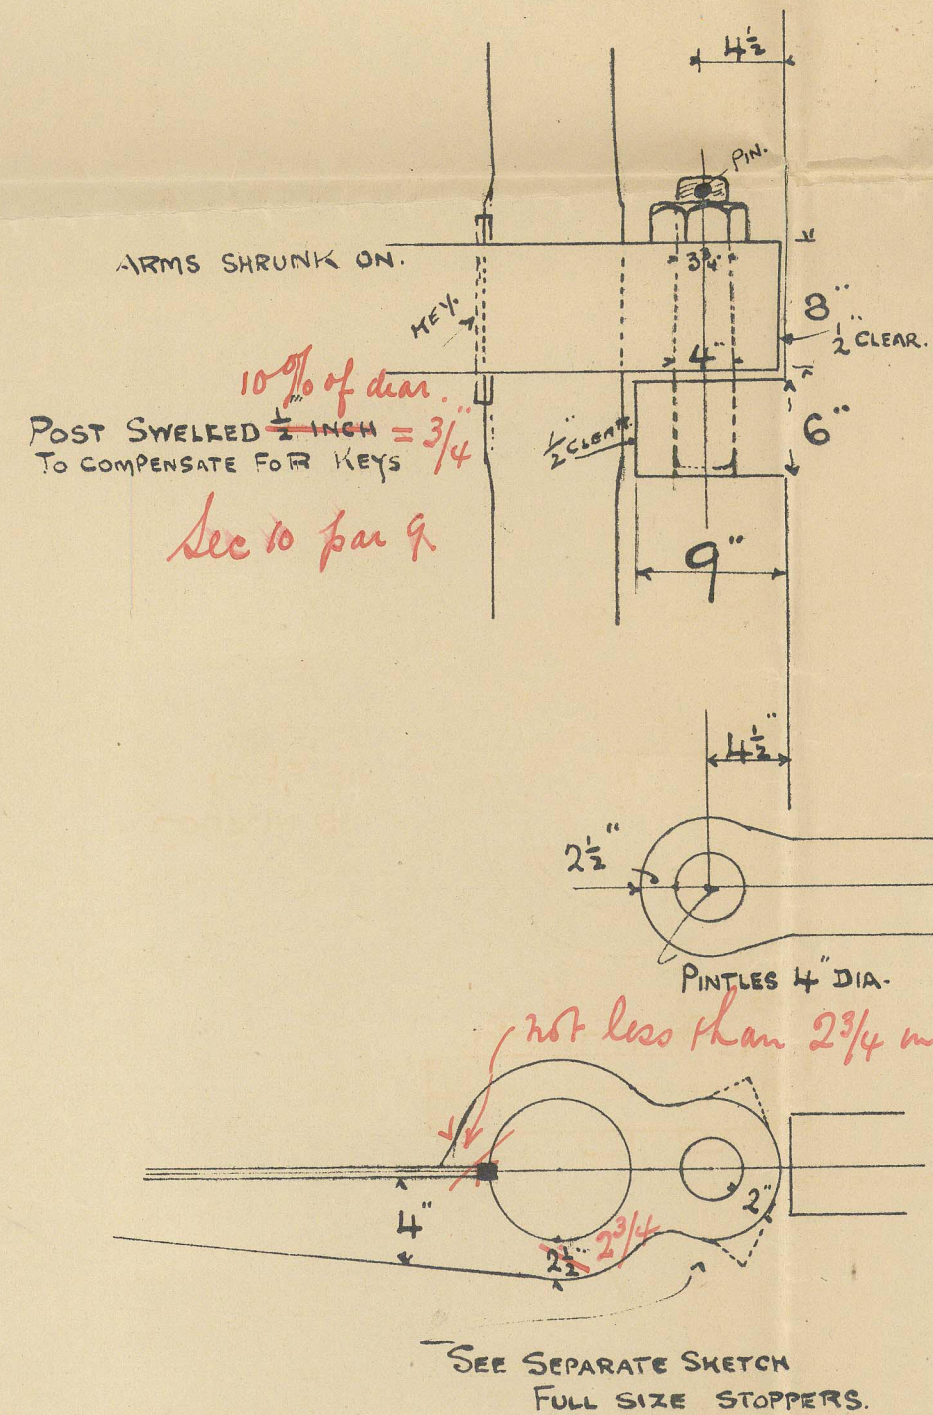 4½"
PIN.
ARMS SHRUNK ON.
3¾"
8"
½" CLEAR.
KEY.
4"
10% of diar.
POST SWELLED ½" INCH = 3/4"
TO COMPENSATE FOR KEYS
½" CLEAR.
6"
Sec 10 par 9.
9"
4½"
2½"
PINTLES 4" DIA.
not less than 2¾
4"
2"
2½" 2¾
SEE SEPARATE SKETCH
FULL SIZE STOPPERS.